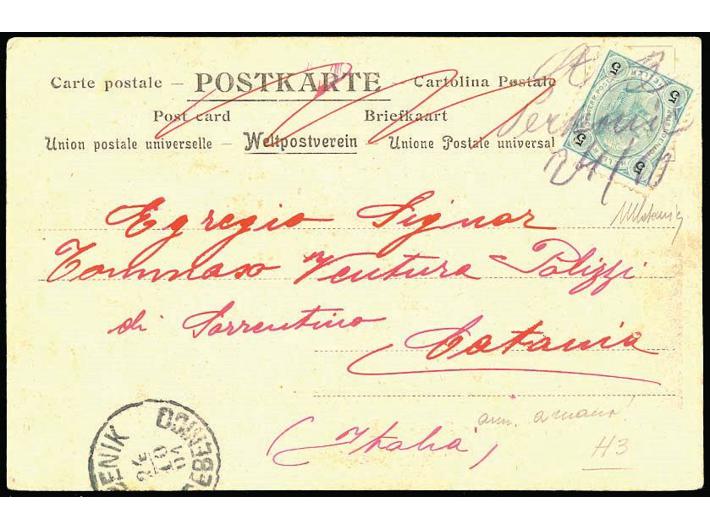 Carte postale – POSTKARTE – Cartolina Postale
Post card Briefkaart
Union postale universelle – Weltpostverein – Unione Postale universal
5 5 5 5
24/10
Egregio Signor
Tommaso Ventura Polizzi
di Sorrentino
Catania
(Italia)
ann. a mano!
H3